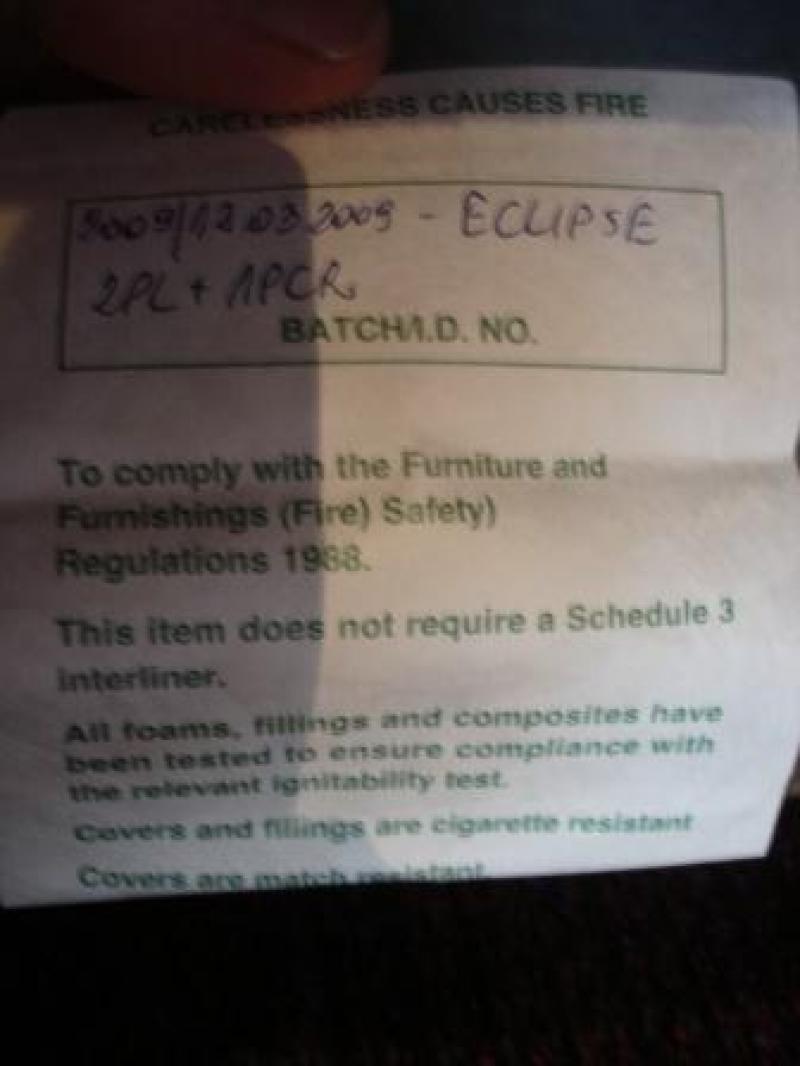 CARELESSNESS CAUSES FIRE
2009/12.03.2009 - ECLIPSE
2PL + 1PCR
BATCH/I.D. NO.
To comply with the Furniture and
Furnishings (Fire) Safety)
Regulations 1988.
This item does not require a Schedule 3
interliner.
All foams, fillings and composites have
been tested to ensure compliance with
the relevant ignitability test.
Covers and fillings are cigarette resistant
Covers are match resistant